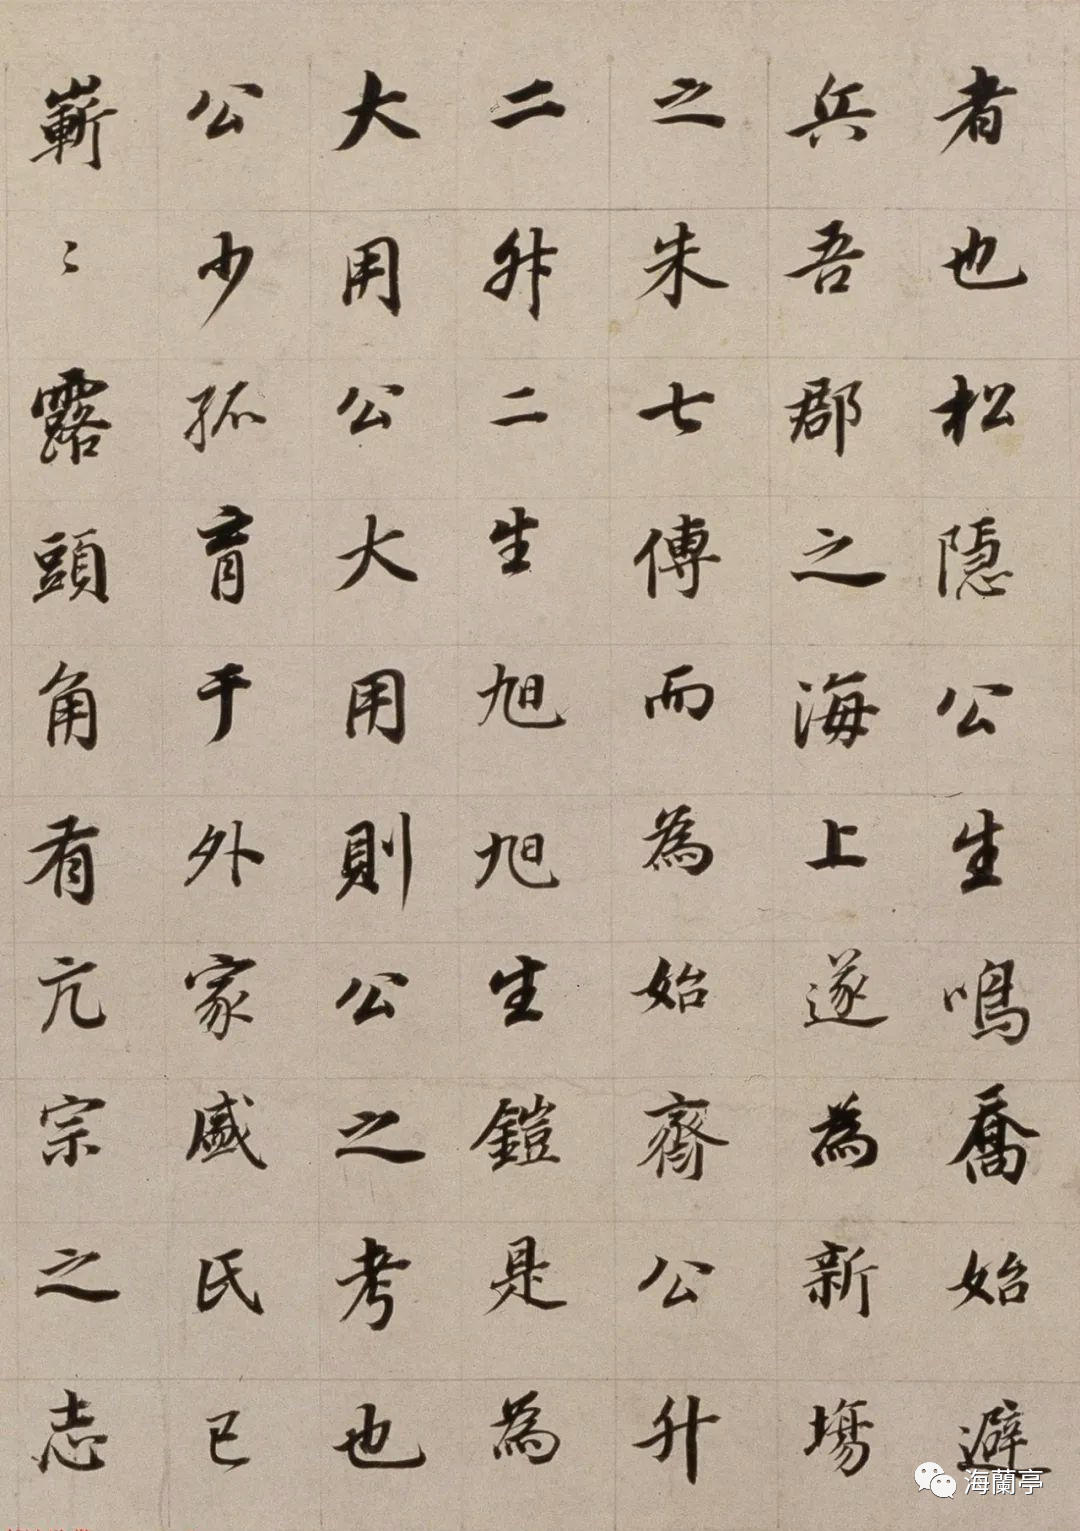 者也松隱公生鳴喬始避
兵吾郡之海上遂為新場
之朱七傅而為始齋公升
二升二生旭旭生鎧是為
大用公大用則公之考也
公少孤育于外家盛氏已
嶄〻露頭角有亢宗之志
海蘭亭